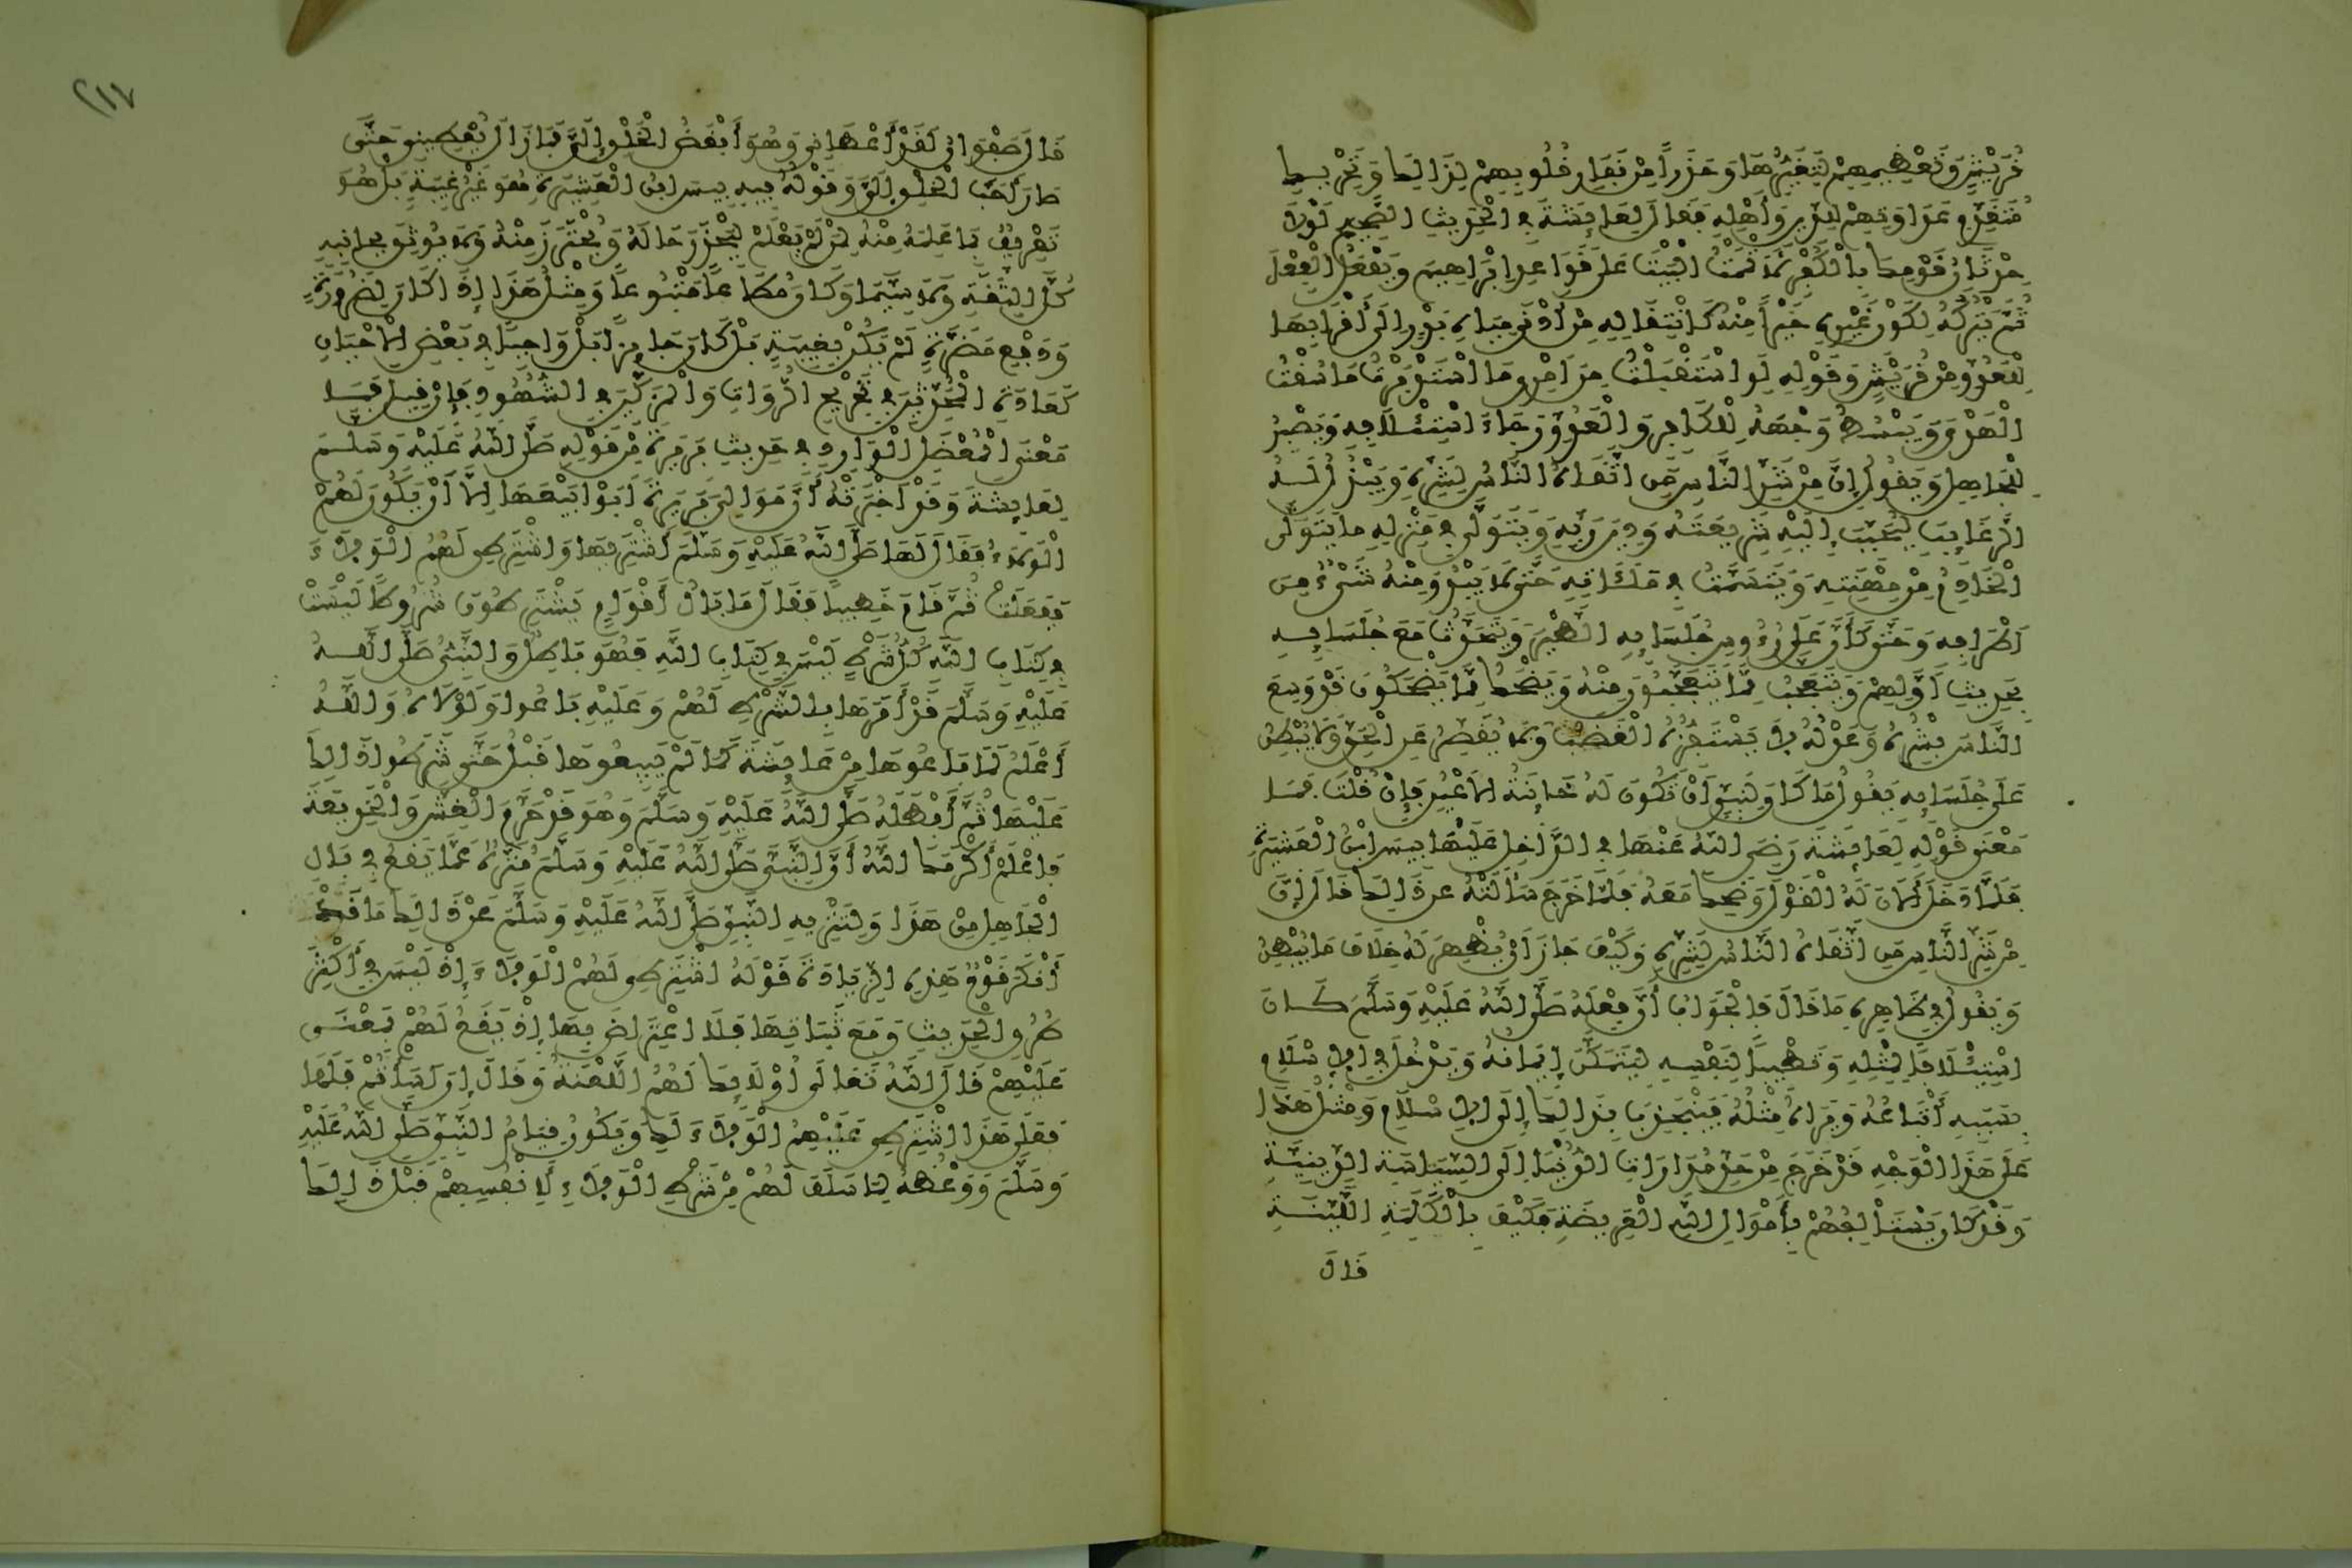 قُرَيْشٍ وَتَعْظِيمِهِمْ لِتَغَيُّرِهَا وَحَذَراً مِنْ نِفَارِ قُلُوبِهِمْ لِذَالِكَ وَتَحْرِيكِ
مُتَقَدِّمِ عَدَاوَتِهِمْ لِلدِّينِ وَأَهْلِهِ فَقَالَ لِعَائِشَةَ فِي الْحَدِيثِ الصَّحِيحِ لَوْلَا
حِدْثَانُ قَوْمِكِ بِالْكُفْرِ لَأَتْمَمْتُ الْبَيْتَ عَلَى قَوَاعِدِ إِبْرَاهِيمَ وَيَفْعَلُ الْفِعْلَ
ثُمَّ يَتْرُكُهُ لِكَوْنِ غَيْرِهِ خَيْراً مِنْهُ كَانْتِقَالِهِ مِنْ أَدْنَى مِيَاهِ بَدْرٍ إِلَى أَقْرَبِهَا
لِلْعَدُوِّ مِنْ قُرَيْشٍ وَقَوْلِهِ لَوِ اسْتَقْبَلْتُ مِنْ أَمْرِي مَا اسْتَدْبَرْتُ مَا سُقْتُ
الْهَدْيَ وَيَبْسُطُ وَجْهَهُ لِلْكَافِرِ وَالْعَدُوِّ رَجَاءَ اسْتِئْلَافِهِ وَيَصْبِرُ
لِلْجَاهِلِ وَيَقُولُ إِنَّ مِنْ شَرِّ النَّاسِ مَنِ اتَّقَاهُ النَّاسُ لِشَرِّهِ وَيَبْذُلُ لَهُ
الرَّغَائِبَ لِيُحَبِّبَ إِلَيْهِ شَرِيعَتَهُ وَدِينَ رَبِّهِ وَيَتَوَلَّى فِي مَنْزِلِهِ مَا يَتَوَلَّى
الْخَادِمُ مِنْ مِهْنَتِهِ وَيَتَسَمَّتُ فِي مَلَائِهِ حَتَّى لَا يَبْدُوَ مِنْهُ شَيْءٌ مِنْ
أَطْرَافِهِ وَحَتَّى كَأَنَّ عَلَى رُءُوسِ جُلَسَائِهِ الطَّيْرَ وَيَتَحَدَّثُ مَعَ جُلَسَائِهِ
بِحَدِيثِ أَوَّلِهِمْ وَيَتَعَجَّبُ مِمَّا يَتَعَجَّبُونَ مِنْهُ وَيَضْحَكُ مِمَّا يَضْحَكُونَ قَدْ وَسِعَ
النَّاسَ بِشْرُهُ وَعَدْلُهُ لَا يَسْتَفِزُّهُ الْغَضَبُ وَلَا يُقَصِّرُ عَنِ الْحَقِّ وَلَا يُبْطِنُ
عَلَى جُلَسَائِهِ يَقُولُ مَا كَانَ لِنَبِيٍّ أَنْ تَكُونَ لَهُ خَائِنَةُ الْأَعْيُنِ فَإِنْ قُلْتَ فَمَا
مَعْنَى قَوْلِهِ لِعَائِشَةَ رَضِيَ اللَّهُ عَنْهَا فِي الدَّاخِلِ عَلَيْهَا بِيسَ ابْنُ الْعَشِيرَةِ
فَلَمَّا دَخَلَ أَلَانَ لَهُ الْقَوْلَ وَضَحِكَ مَعَهُ فَلَمَّا خَرَجَ سَأَلَتْهُ عَنْ ذَالِكَ قَالَ إِنَّ
مِنْ شَرِّ النَّاسِ مَنِ اتَّقَاهُ النَّاسُ لِشَرِّهِ وَكَيْفَ جَازَ أَنْ يُظْهِرَ لَهُ خِلَافَ مَا يُبْطِنُ
وَيَقُولُ فِي ظَاهِرِهِ مَا قَالَ فَالْجَوَابُ أَنَّ فِعْلَهُ صَلَّى اللَّهُ عَلَيْهِ وَسَلَّمَ كَانَ
اسْتِئْلَافاً لِمِثْلِهِ وَتَطْيِيباً لِنَفْسِهِ لِيَتَمَكَّنَ إِيمَانُهُ وَيَدْخُلَ فِي الْإِسْلَامِ
بِسَبَبِهِ أَتْبَاعُهُ وَيَرَاهُ مِثْلُهُ فَيَنْجَذِبَ بِذَالِكَ إِلَى الْإِسْلَامِ وَمِثْلُ هَذَا
عَلَى هَذَا الْوَجْهِ قَدْ خَرَجَ مِنْ حَدِّ مُدَارَاتِ الدُّنْيَا إِلَى السِّيَاسَةِ الدِّينِيَّةِ
وَقَدْ كَانَ يَسْتَأْلِفُهُمْ بِأَمْوَالِ اللَّهِ الْعَرِيضَةِ فَكَيْفَ بِالْكَلِمَةِ اللَّيِّنَةِ
قَالَ
٢١٧
قَالَ صَفْوَانُ لَقَدْ أَعْطَانِي وَهُوَ أَبْغَضُ الْخَلْقِ إِلَيَّ فَمَا زَالَ يُعْطِينِي حَتَّى
صَارَ أَحَبَّ الْخَلْقِ إِلَيَّ وَقَوْلُهُ فِيهِ بِيسَ ابْنُ الْعَشِيرَةِ هُوَ غَيْرُ غِيبَةٍ بَلْ هُوَ
تَعْرِيفُ مَا عَلِمَهُ مِنْهُ لِمَنْ لَمْ يَعْلَمْ لِيُحْذَرَ حَالُهُ وَيُحْتَرَزَ مِنْهُ وَلَا يُوثَقَ بِجَانِبِهِ
كُلَّ الثِّقَةِ وَلَا سِيَّمَا وَكَانَ مُطَاعاً مَتْبُوعاً وَمِثْلُ هَذَا إِذَا كَانَ لِضَرُورَةٍ
وَدَفْعِ مَضَرَّةٍ لَمْ يَكُنْ بِغِيبَةٍ بَلْ كَانَ جَائِزاً بَلْ وَاجِباً فِي بَعْضِ الْأَحْيَانِ
كَعَادَةِ الْمُحَدِّثِينَ فِي تَجْرِيحِ الرُّوَاتِ وَالْمُزَكِّينَ فِي الشُّهُودِ فَإِنْ قِيلَ فَمَا
مَعْنَى الْمُعْضِلِ الْوَارِدِ فِي حَدِيثِ بَرِيرَةَ مِنْ قَوْلِهِ صَلَّى اللَّهُ عَلَيْهِ وَسَلَّمَ
لِعَائِشَةَ وَقَدْ أَخْبَرَتْهُ أَنَّ مَوَالِيَ بَرِيرَةَ أَبَوْا بَيْعَهَا إِلَّا أَنْ يَكُونَ لَهُمُ
الْوَلَاءُ فَقَالَ لَهَا صَلَّى اللَّهُ عَلَيْهِ وَسَلَّمَ اشْتَرِيهَا وَاشْتَرِطِي لَهُمُ الْوَلَاءَ
فَفَعَلَتْ ثُمَّ قَامَ خَطِيباً فَقَالَ مَا بَالُ أَقْوَامٍ يَشْتَرِطُونَ شُرُوطاً لَيْسَتْ
فِي كِتَابِ اللَّهِ كُلُّ شَرْطٍ لَيْسَ فِي كِتَابِ اللَّهِ فَهُوَ بَاطِلٌ وَالنَّبِيُّ صَلَّى اللَّهُ
عَلَيْهِ وَسَلَّمَ قَدْ أَمَرَهَا بِالشَّرْطِ لَهُمْ وَعَلَيْهِ بَاعُوا وَلَوْلَاهُ وَاللَّهُ
أَعْلَمُ لَمَا بَاعُوهَا مِنْ عَائِشَةَ كَمَا لَمْ يَبِيعُوهَا قَبْلُ حَتَّى شَرَطُوا ذَالِكَ
عَلَيْهَا ثُمَّ أَبْطَلَهُ صَلَّى اللَّهُ عَلَيْهِ وَسَلَّمَ وَهُوَ قَدْ حَرَّمَ الْغِشَّ وَالْخَدِيعَةَ
فَاعْلَمْ أَكْرَمَكَ اللَّهُ أَنَّ النَّبِيَّ صَلَّى اللَّهُ عَلَيْهِ وَسَلَّمَ مُنَزَّهٌ عَمَّا يَقَعُ فِي بَالِ
الْجَاهِلِ مِنْ هَذَا وَلِتَنْزِيهِ النَّبِيِّ صَلَّى اللَّهُ عَلَيْهِ وَسَلَّمَ عَنْ ذَالِكَ مَا قَدْ
أَنْكَرَ قَوْمٌ هَذِهِ الزِّيَادَةَ قَوْلَهُ اشْتَرِطِي لَهُمُ الْوَلَاءَ إِذْ لَيْسَ فِي أَكْثَرِ
طُرُقِ الْحَدِيثِ وَمَعَ ثَبَاتِهَا فَلَا اعْتِرَاضَ بِهَا إِذْ يَقَعُ لَهُمْ بِمَعْنَى
عَلَيْهِمْ قَالَ اللَّهُ تَعَالَى أُوْلَائِكَ لَهُمُ اللَّعْنَةُ وَقَالَ إِنْ أَسَأْتُمْ فَلَهَا
فَعَلَى هَذَا اشْتَرِطِي عَلَيْهِمُ الْوَلَاءَ لَكِ وَيَكُونُ قِيَامُ النَّبِيِّ صَلَّى اللَّهُ عَلَيْهِ
وَسَلَّمَ وَوَعْظُهُ لِمَا سَلَفَ لَهُمْ مِنْ شَرْطِ الْوَلَاءِ لِأَنْفُسِهِمْ قَبْلَ ذَالِكَ